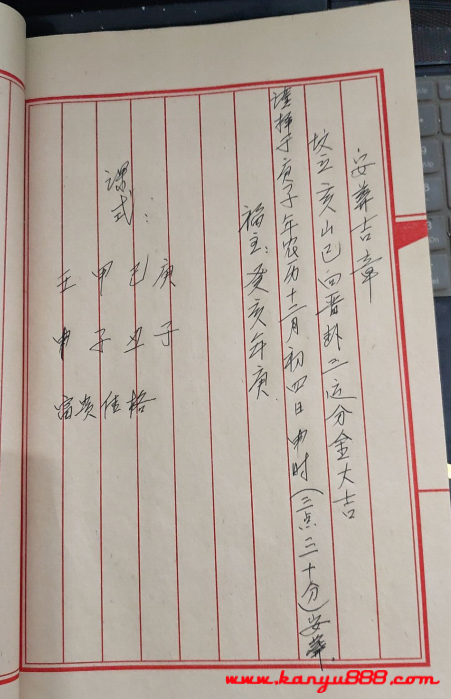 安葬吉章
坟立亥山巳向晋卦二运分金大吉
谨择于庚子年农历十二月初四日申时(三点三十分)安葬.
福主:癸亥年庚.
课式:
庚己甲壬
子丑子申
富贵佳格
www.kanyu888.com